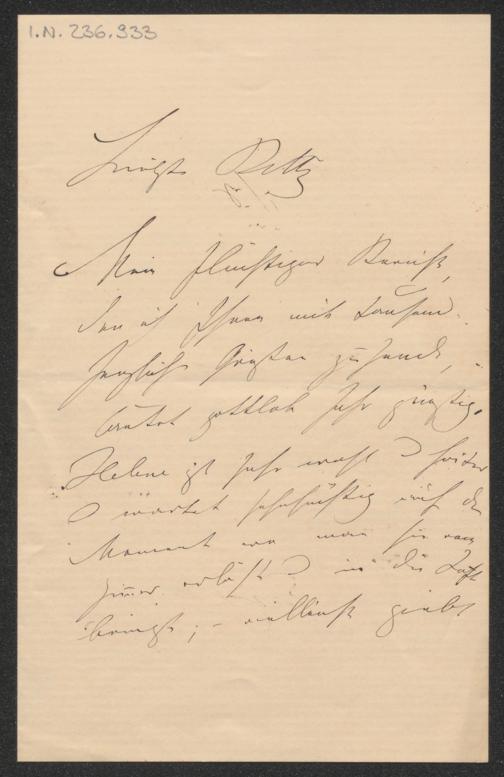 I.N. 236.933
Liebste Betty
Mein flüchtiger Bericht,
den ich Ihnen mit tausend
herzlichen Grüßen zusende,
lautet gottlob sehr günstig.
Helene ist sehr wohl u heiter
u wartet sehnsüchtig auf den
Moment wo man sie vom
Zimmer erlöst u in die Luft
bringt; – vielleicht giebt